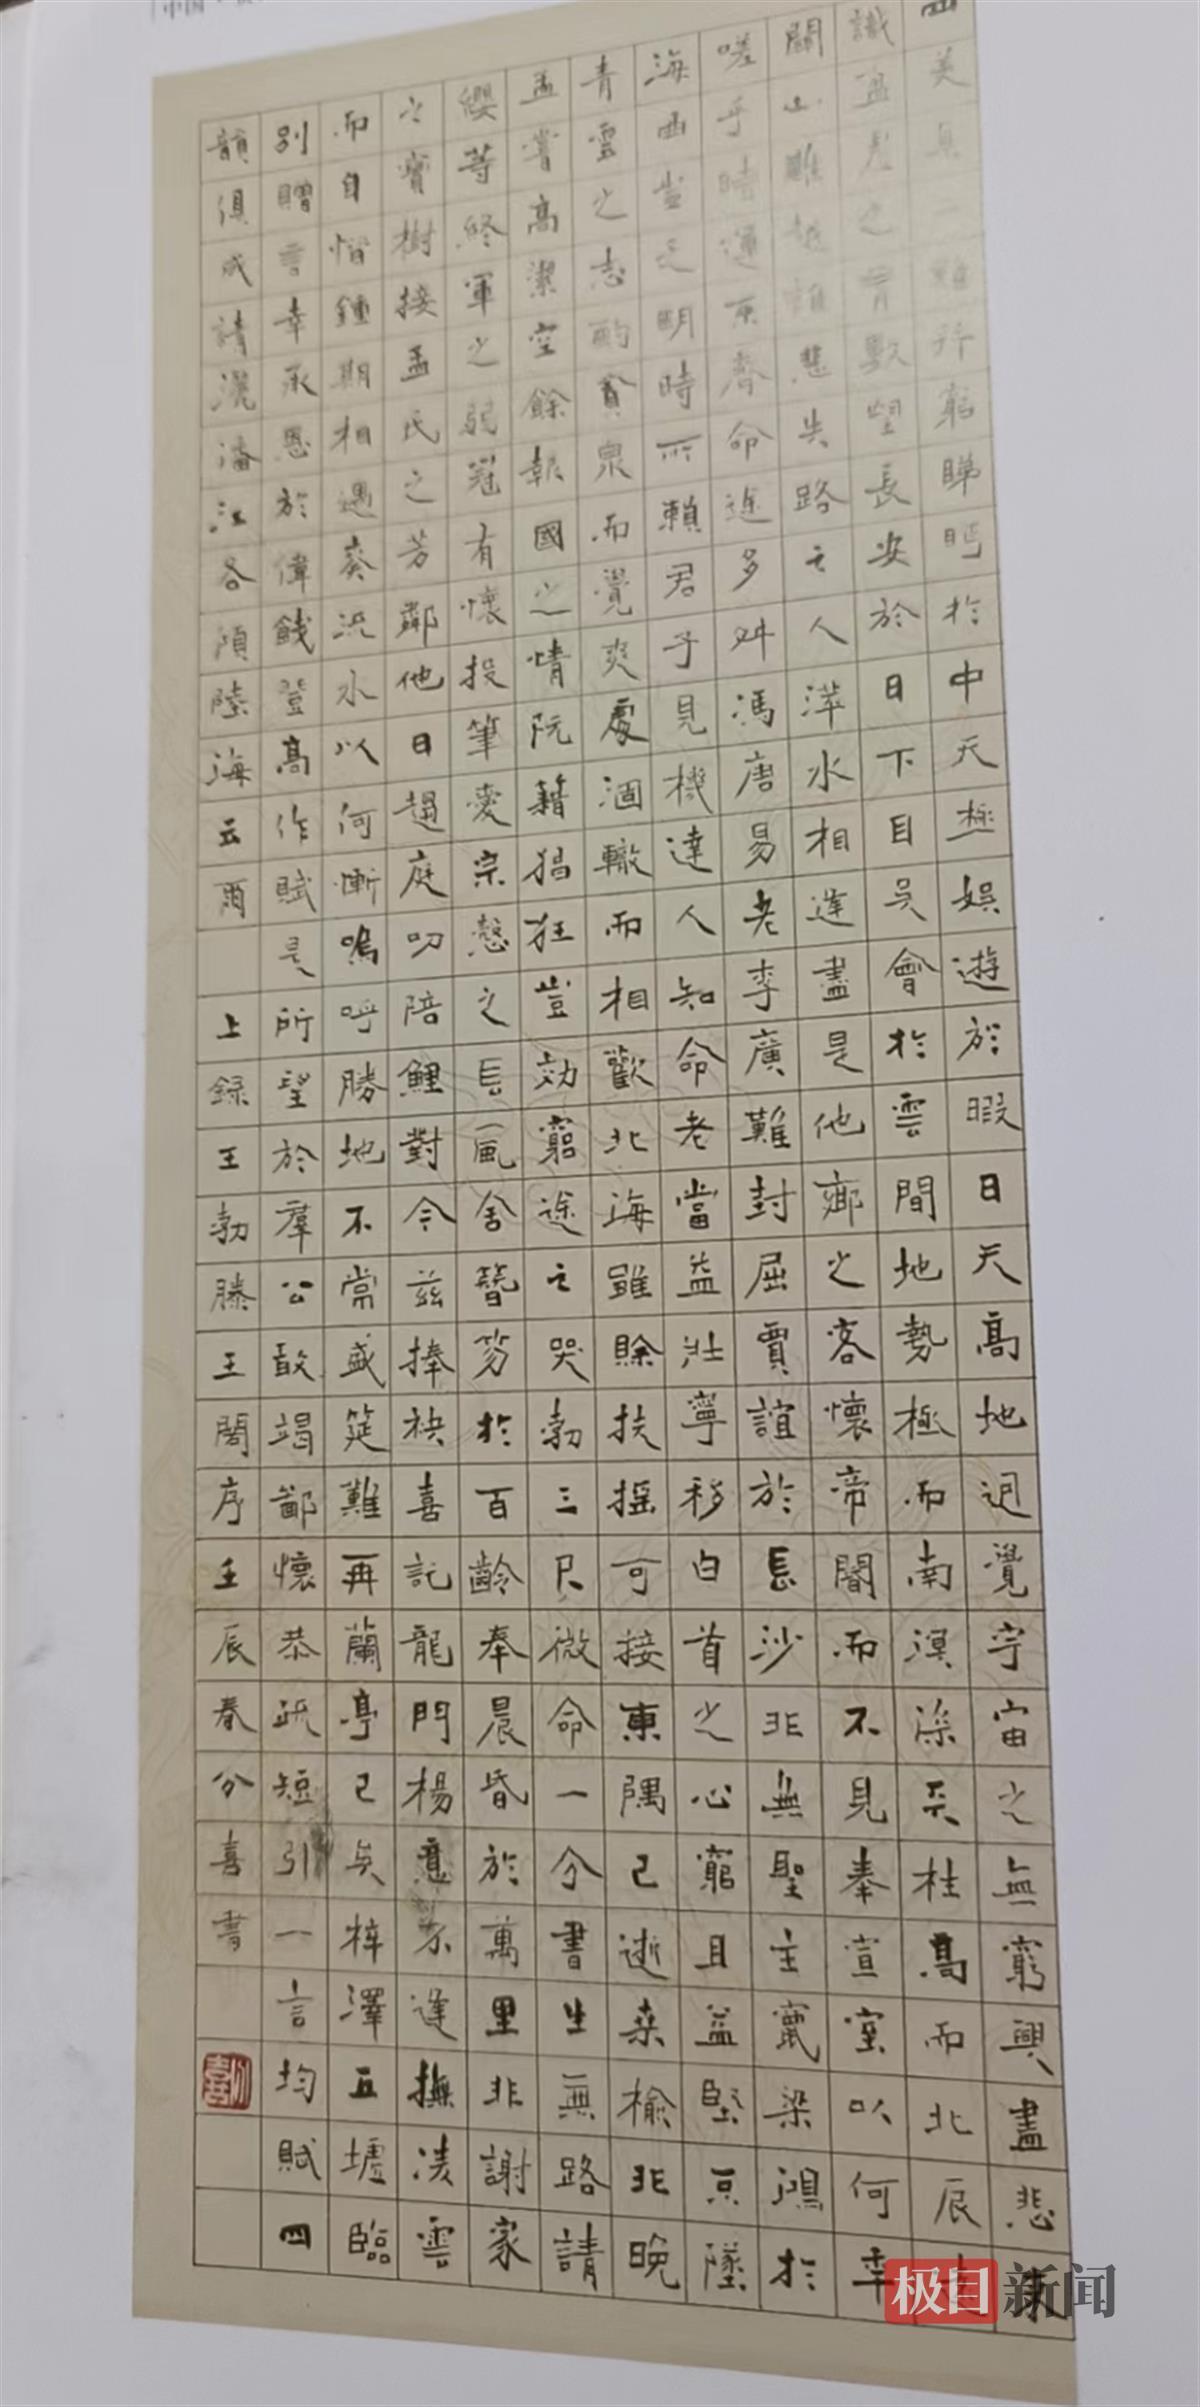 中国
四美具二難并窮睇眄於中天極娛遊於暇日天高地迥覺宇宙之無窮興盡悲來
識盈虛之有數望長安於日下目吳會於雲間地勢極而南溟深天柱高而北辰遠
關山難越誰悲失路之人萍水相逢盡是他鄉之客懷帝閽而不見奉宣室以何年
嗟乎時運不齊命途多舛馮唐易老李廣難封屈賈誼於長沙非無聖主竄梁鴻於
海曲豈乏明時所賴君子見機達人知命老當益壯寧移白首之心窮且益堅不墜
青雲之志酌貪泉而覺爽處涸轍而相歡北海雖賒扶搖可接東隅已逝桑榆非晚
孟嘗高潔空餘報國之情阮籍猖狂豈効窮途之哭勃三尺微命一介書生無路請
纓等終軍之弱冠有懷投筆愛宗愨之長風舍簪笏於百齡奉晨昏於萬里非謝家
之寶樹接孟氏之芳鄰他日趨庭叨陪鯉對今茲捧袂喜託龍門楊意不逢撫凌雲
而自惜鍾期相遇奏流水以何慚嗚呼勝地不常盛筵難再蘭亭已矣梓澤丘墟臨
別贈言幸承恩於偉餞登高作賦是所望於羣公敢竭鄙懷恭疏短引一言均賦四
韻俱成請灑潘江各傾陸海云爾 上録王勃滕王閣序壬辰春分喜書
极目新闻